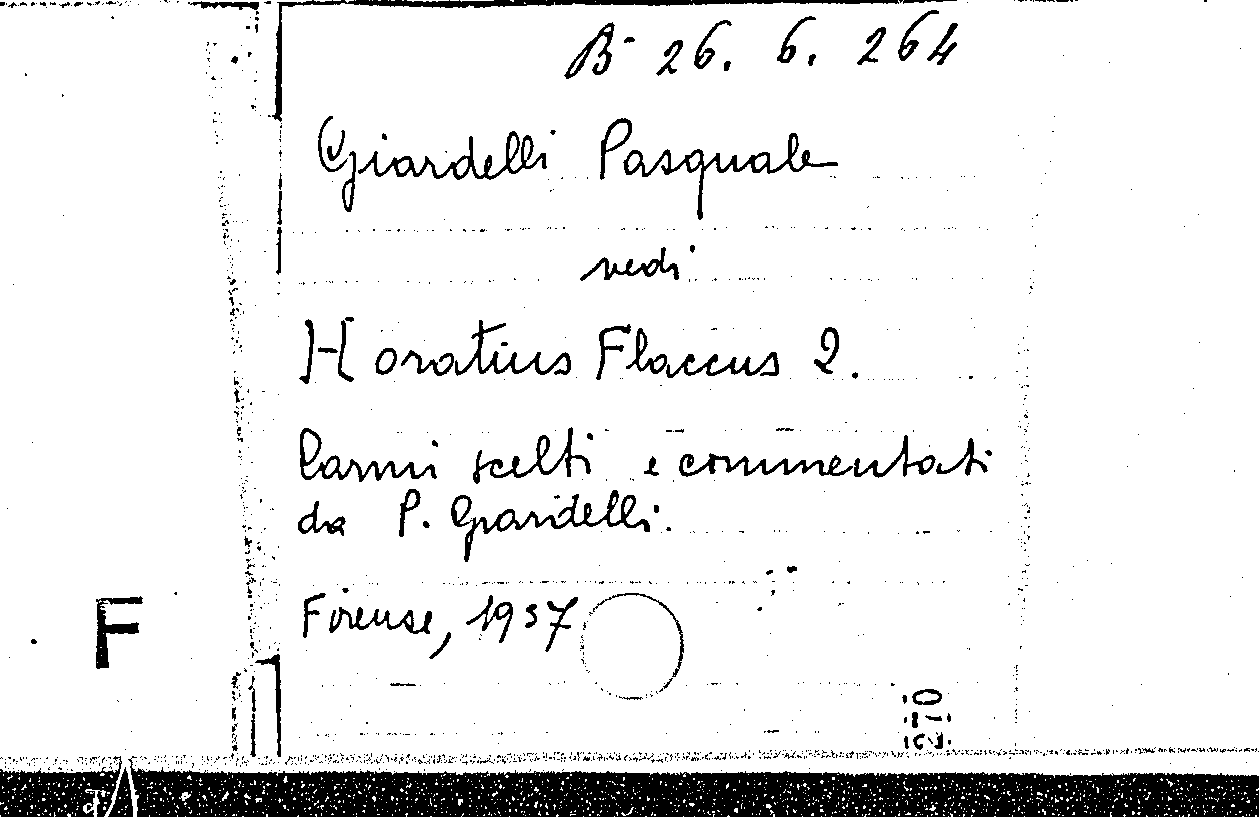 B- 26. 6. 264
Giardelli Pasquale
vedi
Horatius Flaccus Q.
Carmi scelti e commentati
da P. Giardelli.
Firense, 1937
F
270